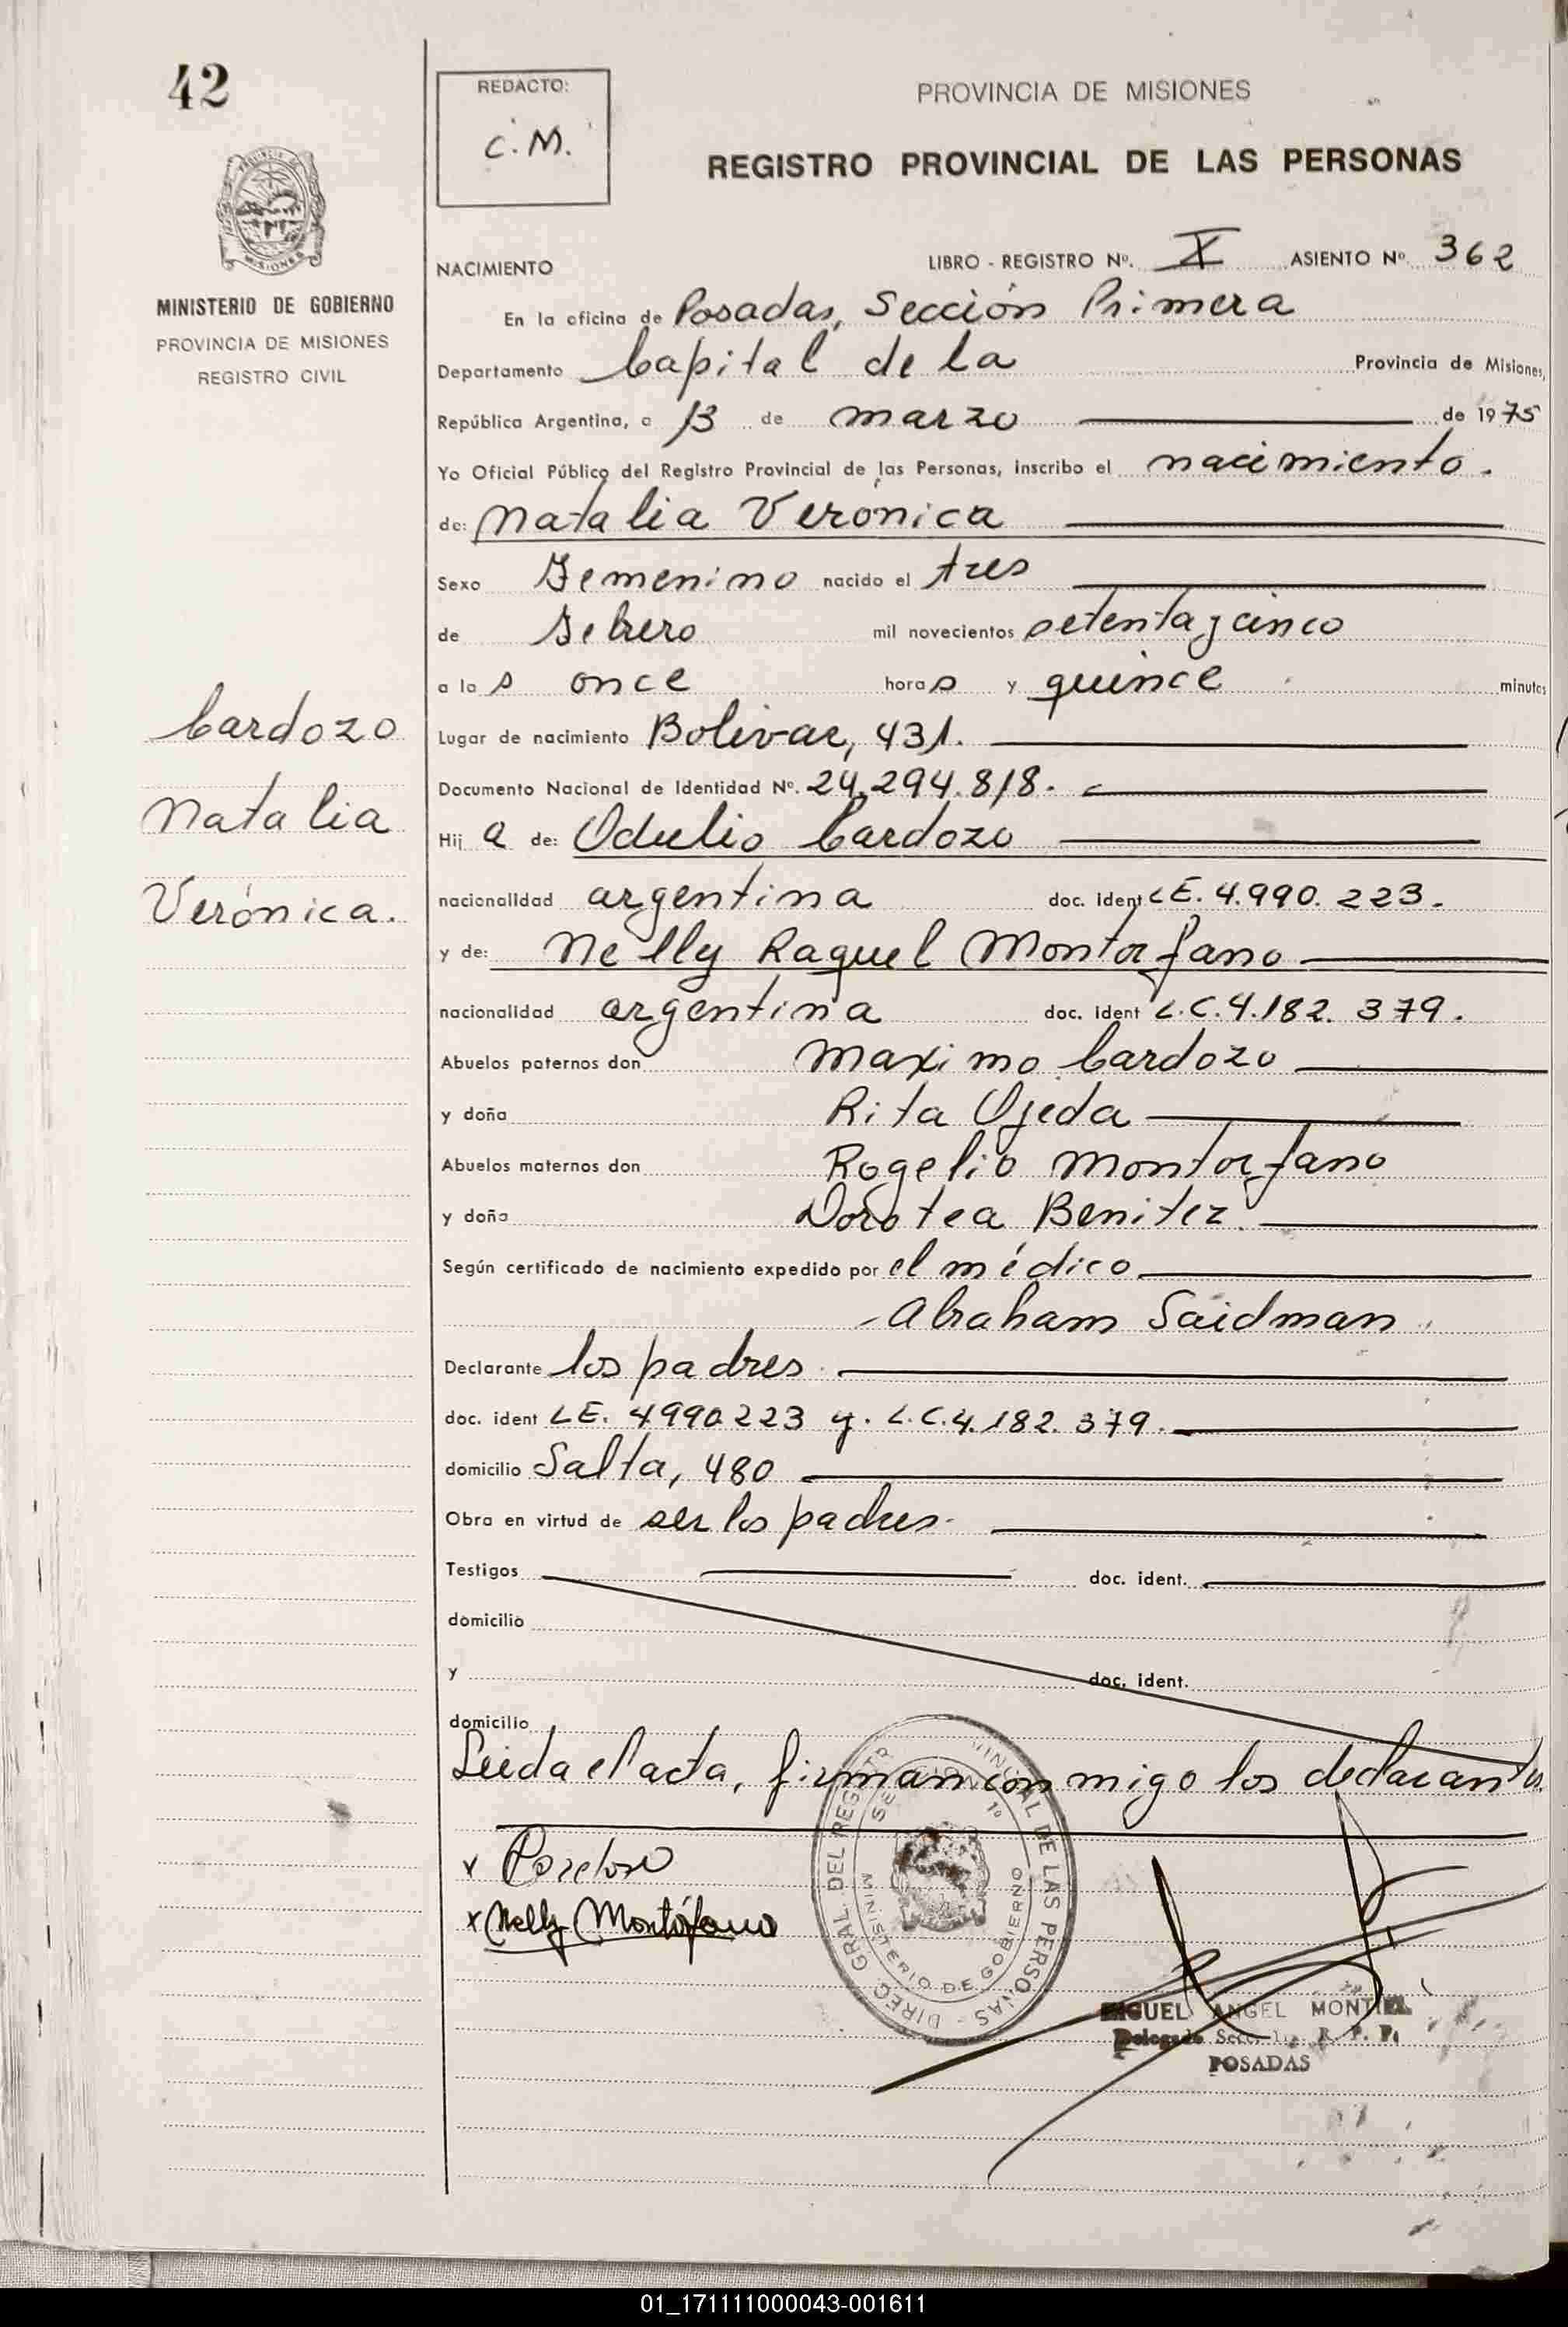 42
REDACTO:
C.M.
PROVINCIA DE MISIONES
REGISTRO PROVINCIAL DE LAS PERSONAS
MISIONES
MINISTERIO DE GOBIERNO
PROVINCIA DE MISIONES
REGISTRO CIVIL
NACIMIENTO LIBRO - REGISTRO Nº. X ASIENTO Nº 362
En la oficina de Posadas, Sección Primera
Departamento Capital de la Provincia de Misiones,
República Argentina, a 13 de marzo de 1975
Yo Oficial Público del Registro Provincial de las Personas, inscribo el nacimiento.
de: Natalia Verónica
Sexo Femenino nacido el tres
de Febrero mil novecientos setenta y cinco
a las once horas y quince minutos
Lugar de nacimiento Bolívar, 431.
Documento Nacional de Identidad Nº. 24.294.818.
Hija de: Odulio Cardozo
nacionalidad argentina doc. ident LE. 4.990.223.
y de: Nelly Raquel Montorfano
nacionalidad argentina doc. ident L.C. 4.182.379.
Abuelos paternos don Maximo Cardozo
y doña Rita Ojeda
Abuelos maternos don Rogelio Montorfano
y doña Dorotea Benitez.
Según certificado de nacimiento expedido por el médico
Abraham Saidman
Declarante los padres
doc. ident LE. 4990223 y. L.C. 4.182.379.
domicilio Salta, 480
Obra en virtud de ser los padres.
Testigos doc. ident.
domicilio
y doc. ident.
domicilio
Leida el acta, firman conmigo los declarantes.
x
x Nelly Montorfano
DIREC. GRAL. DEL REGISTR VINCIAL DE LAS PERSONAS
SECCION 1º
MINISTERIO DE GOBIERNO
MIGUEL ANGEL MONTIEL
Delegado Secc. 1ra. R. P. P.
POSADAS
Cardozo
Natalia
Verónica.
01_171111000043-001611